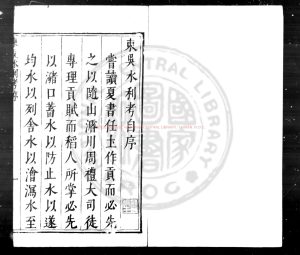 東吳水利考自序
嘗讀夏書任土作貢而必先
之以隨山濬川周禮大司徒
專理貢賦而稻人所掌必先
以瀦口蓄水以防止水以遂
均水以列舍水以澮瀉水至